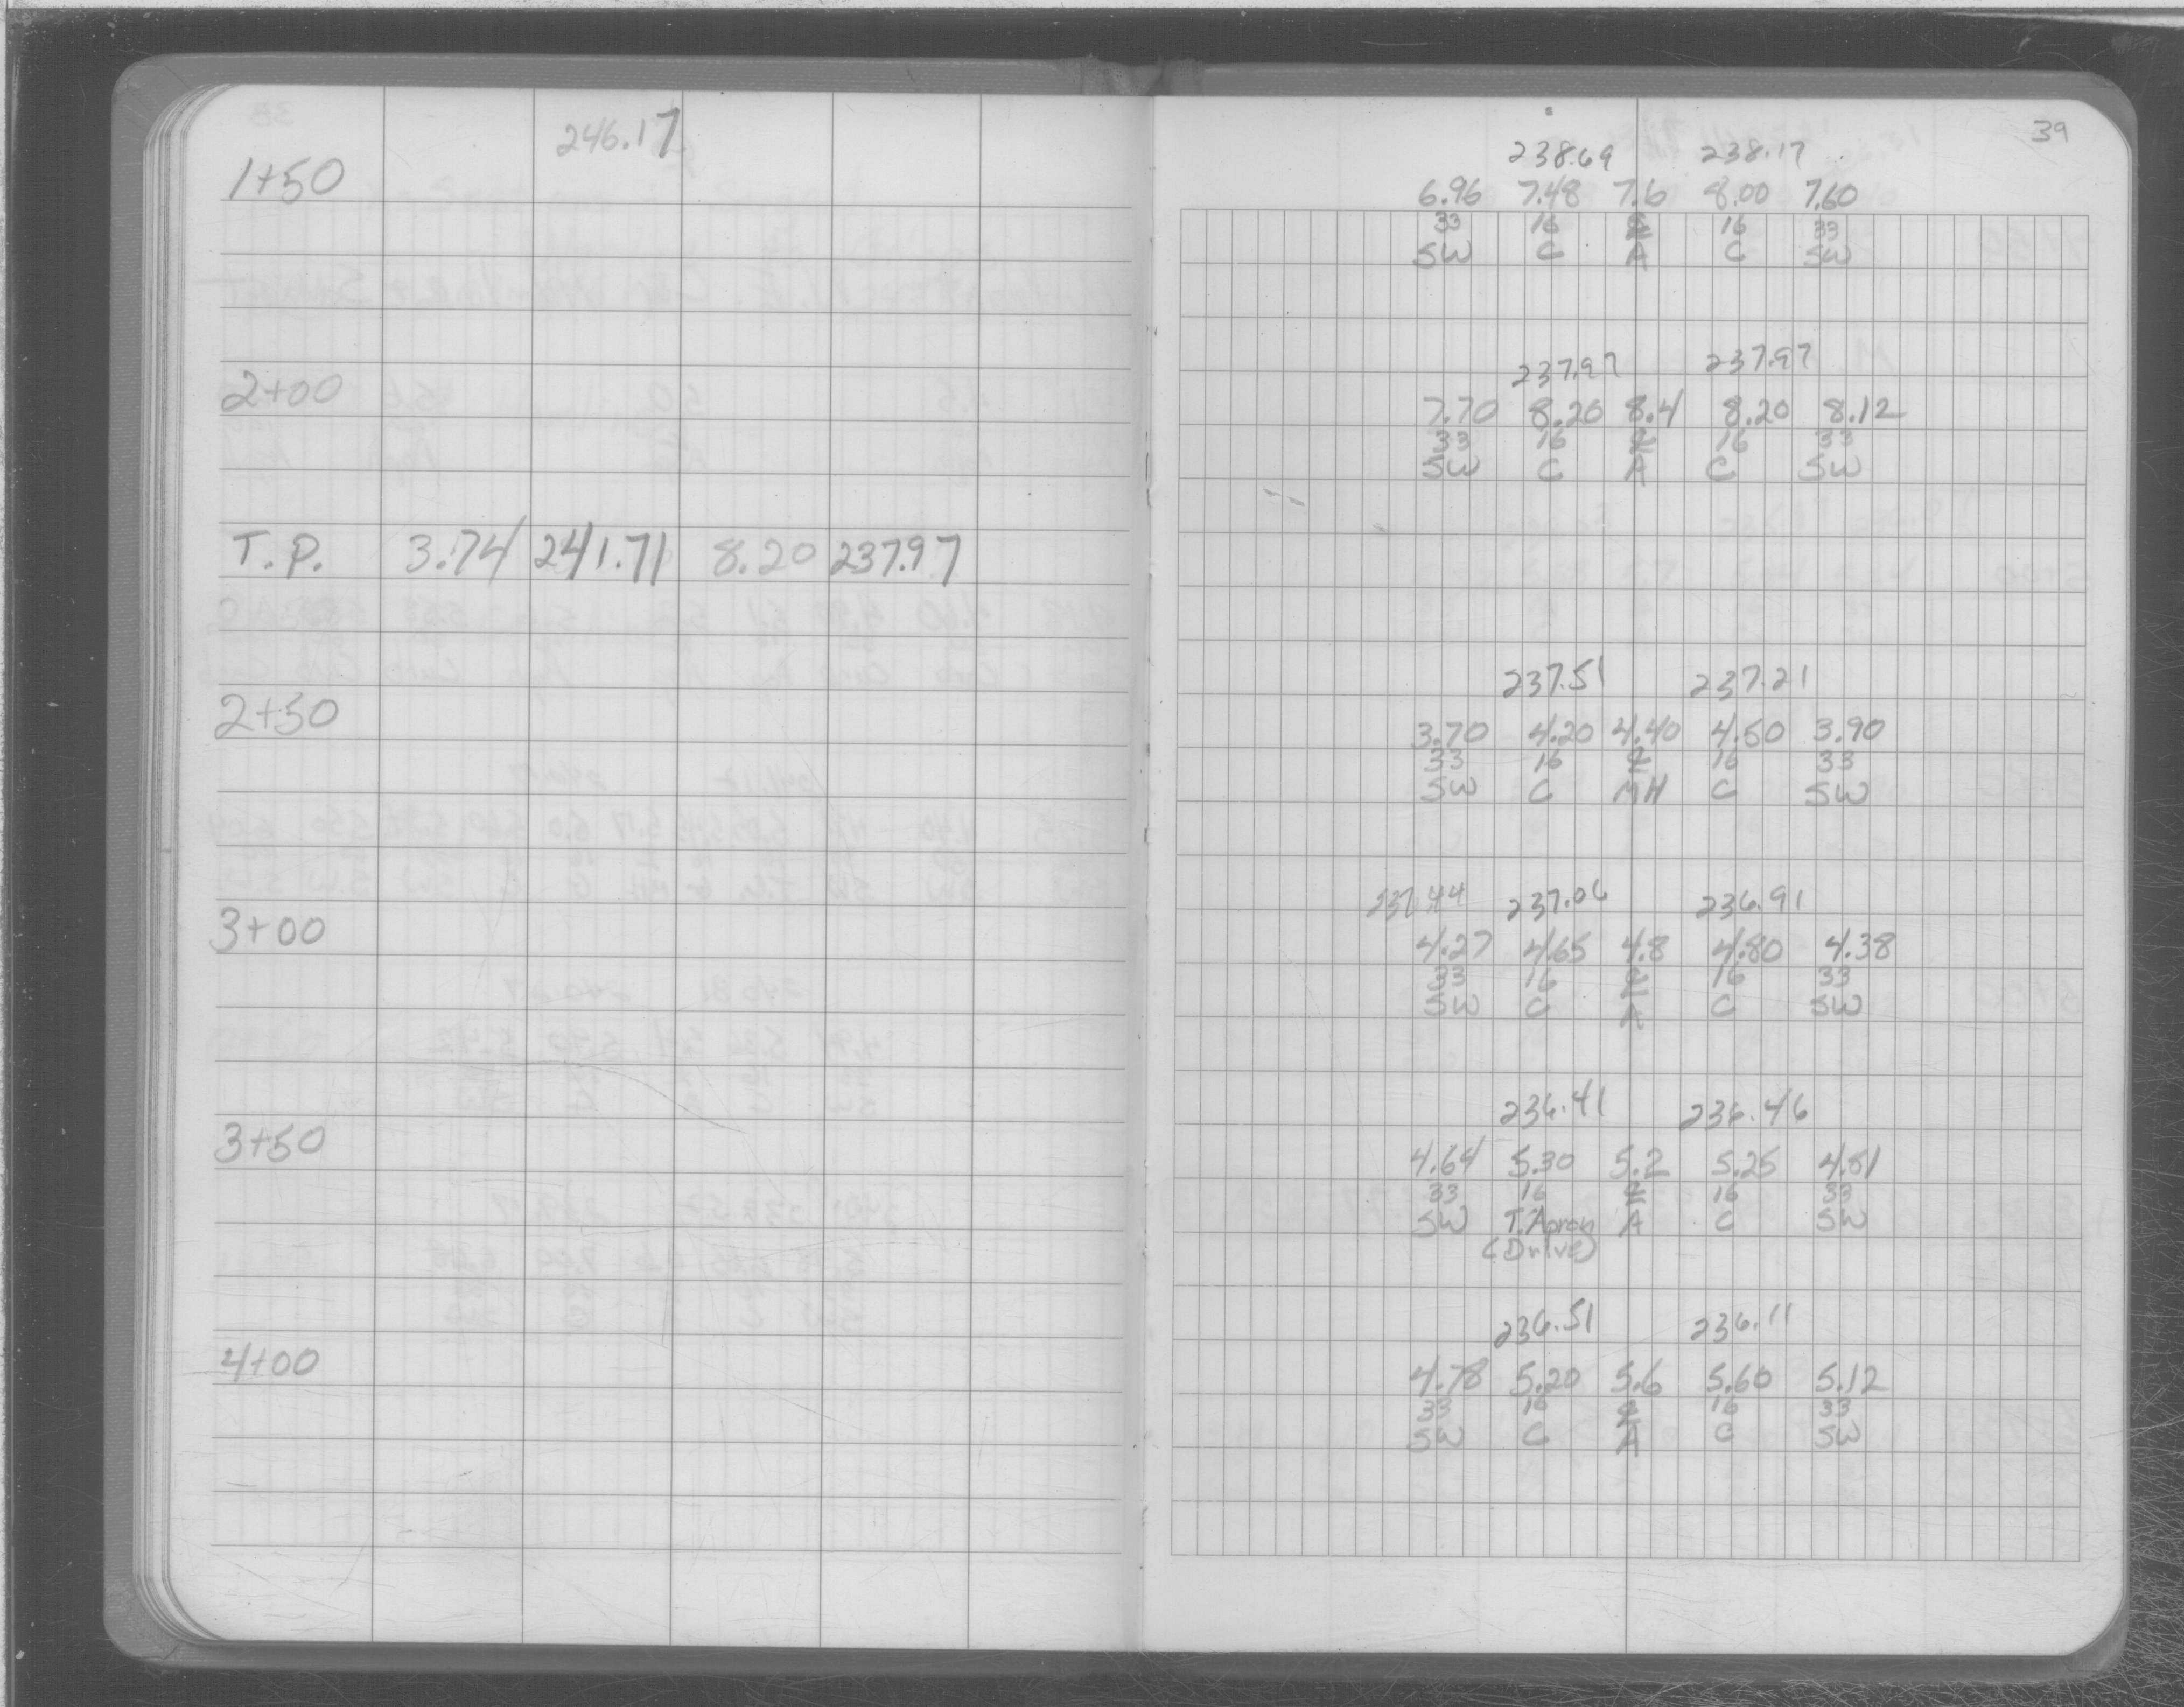 246.17
1+50
2+00
T.P. 3.74 241.71 8.20 237.97
2+50
3+00
3+50
4+00
39
238.69 238.17
6.96 7.48 7.6 8.00 7.60
33 16 ℄ 16 33
SW C A C SW
237.97 237.97
7.70 8.20 8.4 8.20 8.12
33 16 ℄ 16 33
SW C A C SW
237.51 237.21
3.70 4.20 4.40 4.50 3.90
33 16 ℄ 16 33
SW C MH C SW
237.44 237.06 236.91
4.27 4.65 4.8 4.80 4.38
33 16 ℄ 16 33
SW C A C SW
236.41 236.46
4.64 5.30 5.2 5.25 4.81
33 16 ℄ 16 33
SW T.Apron A C SW
(Drive)
236.51 236.11
4.78 5.20 5.6 5.60 5.12
33 16 ℄ 16 33
SW C A C SW